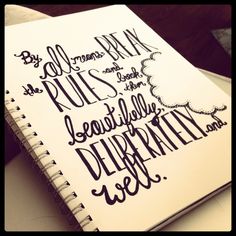 By all means BREAK
the RULES and break
them
beautifully,
DELIBERATELY and
well.